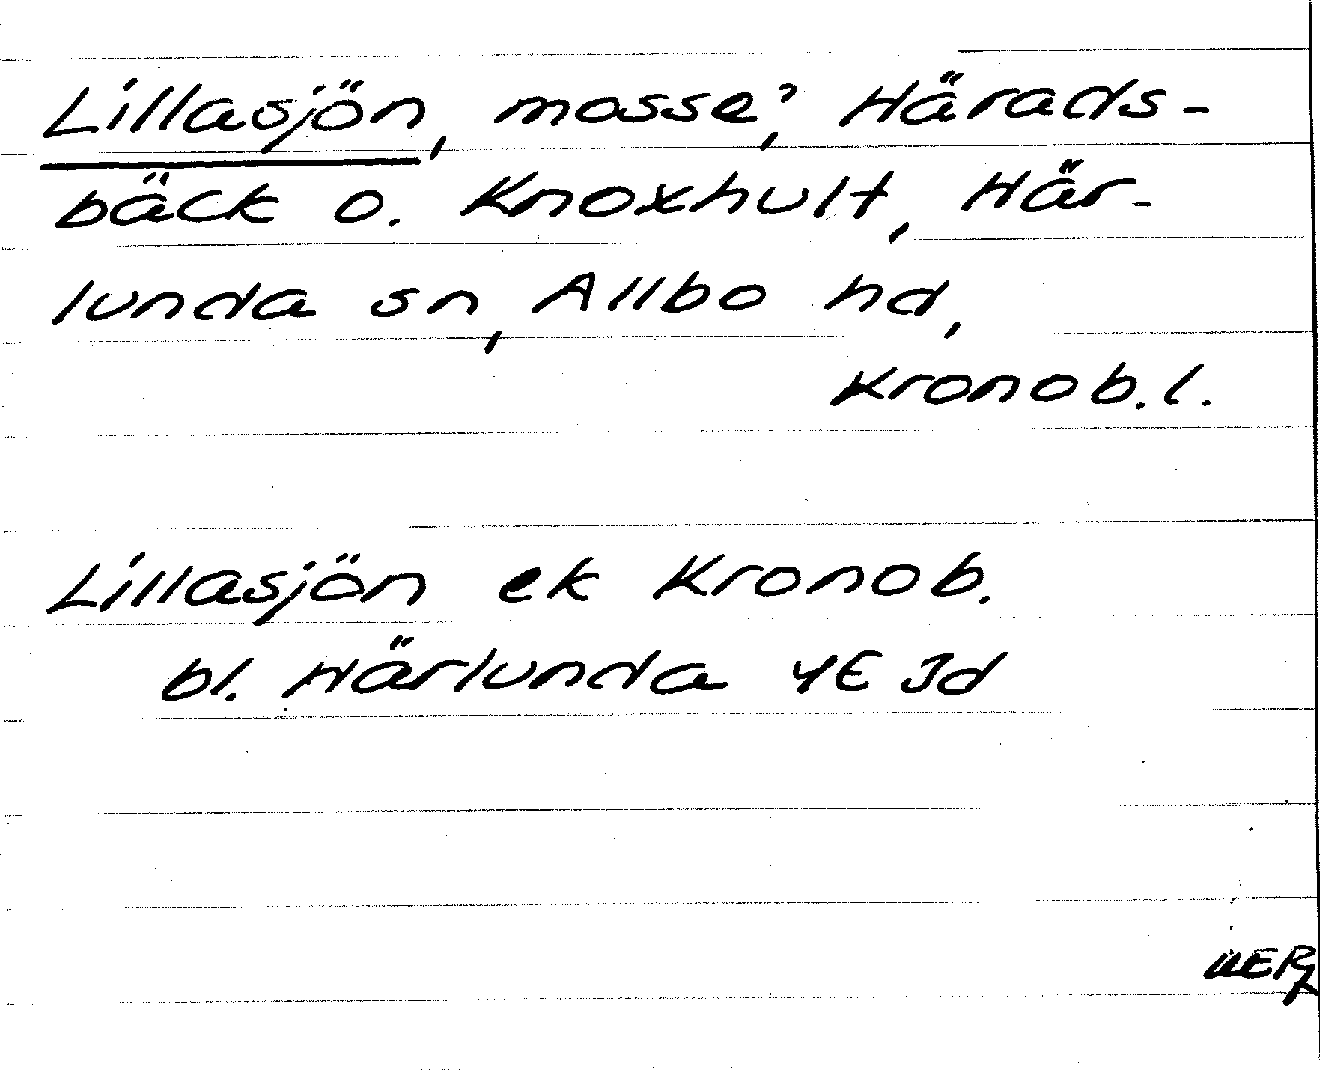 Lillasjön, mosse?, Härads-
bäck o. Knoxhult, Här-
lunda sn, Allbo hd,
Kronob. l.
Lillasjön ek Kronob.
bl. Härlunda 4E Id